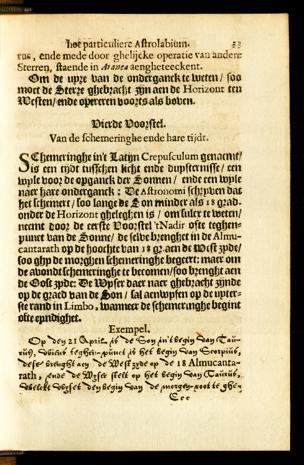 het particuliere Astrolabium. 33
rus, ende mede door ghelijcke operatie van andere
Sterren, staende in Aranea aengheteeckent.
Om de uyre van de onderganck te weten / soo
moet de Sterre ghebracht zijn aen de Horizont ten
Westen / ende opereren voorts als boven.
Vierde Voorstel.
Van de schemeringhe ende hare tijdt.
SChemeringhe in't Latijn Crepusculum genaemt /
is een tijdt tusschen licht ende duysternisse / een
wyle voor de opganck der Sonnen / ende een wyle
naer hare onderganck : De Astronomi schryven dat
het schemert / soo lange de Son minder als 18 grad.
onder de Horizont gheleghen is / om sulcx te weten /
neemt door de eerste Voorstel 'tNadir ofte teghen-
punct van de Sonne / de selve brenght in de Almu-
cantarath op de hoochte van 18 gr. aen de West zyde /
soo ghy de morghen schemeringhe begeert: maer om
de avondt schemeringhe te becomen / soo brenght aen
de Oost zyde: De Wyser daer naer ghebracht zijnde
op de graed van de Son / sal aenwysen op de uyter-
ste rand in Limbo, wanneer de schemeringhe begint
ofte eyndighet.
Exempel.
Op den 21 April is de Son in't begin van Tau-
rus, wiens teghen-punct is het begin van Scorpius,
dese brenght aen de West zyde op de 18 Almucanta-
rath, ende de Wyser stelt op het begin van Taurus,
welcke wyset den begin van de morgen-root te ghe-
Eee